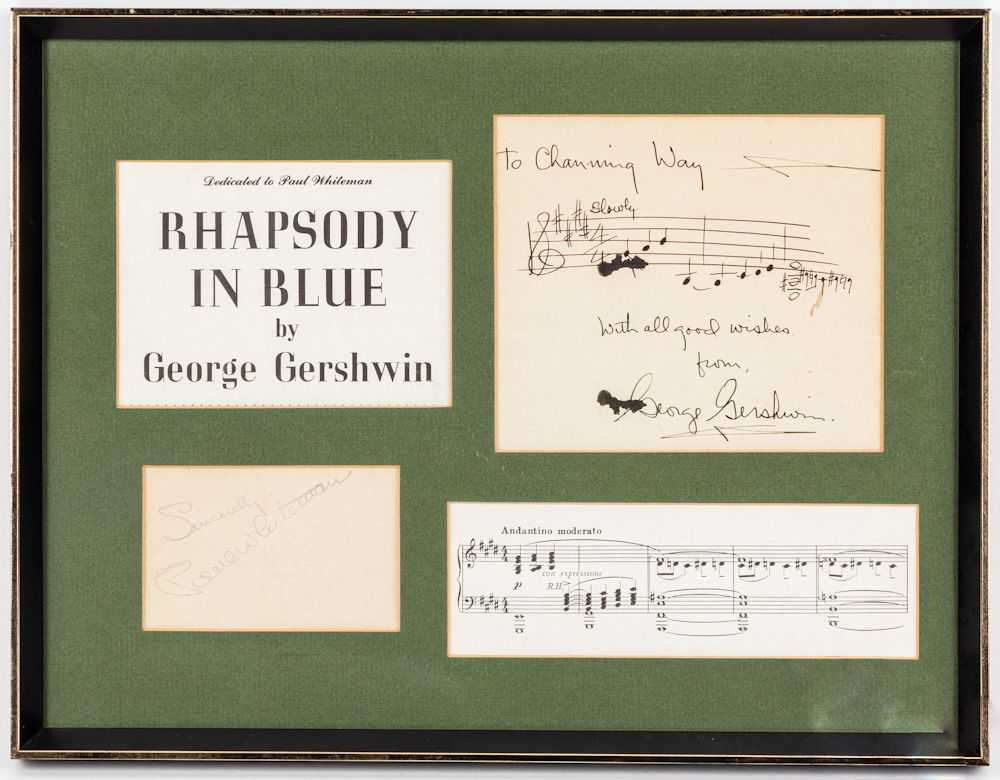 Dedicated to Paul Whiteman
RHAPSODY
IN BLUE
by
George Gershwin
To Channing Way
Slowly
With all good wishes,
from,
George Gershwin.
Sincerely
Paul Whiteman
Andantino moderato
p
con espressione
R.H.